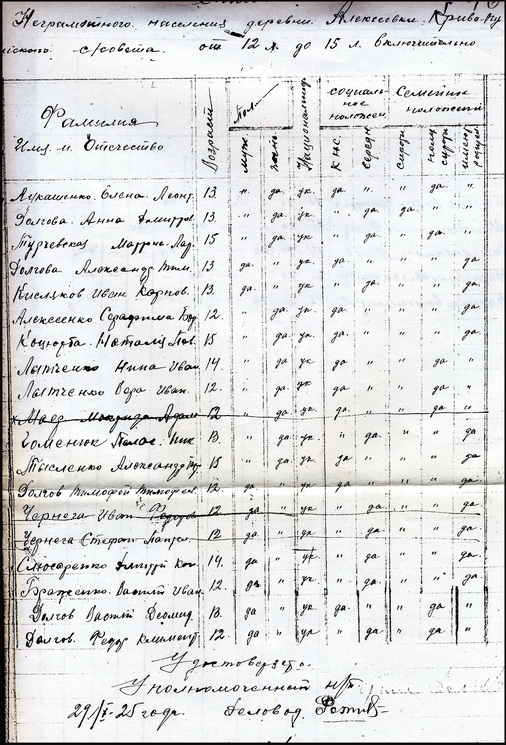 Неграмотного населения деревни Алексеевки Криво-
сельсовета от 12 л. до 15 л. включительно
Фамилия Имя и Отчество Возраст Пол муж жен Национальн. социальное положен. КНС середн Семейное положение сироты полу сироты имеющ родит
Лукашенко Елена Леонт. 13 " да ук да " " да "
Долгова Анна Дмитров. 13 " да ук " да да " "
Турчевская Матрона Лар. 15 " да ук " да " да "
Долгова Александр Тим. 13 да " ук да " " " да
Кисляков Иван Карпов. 13 да " ук " да " " да
Алексеенко Серафима 12 " да ук да " " " да
Коцюрба Наталія Пав. 15 " да ук да " " " да
Лытченко Нина Иван 14 " да ук да " " да "
Лытченко Вера Иван 12 " да ук да " " да "
Макрида Адам 12 " да ук да " " да "
Гоменюк Пелаг. 13 " да ук " да " " да
Тысленко Александр 15 " да ук да " " " да
Долгов Тимофей Тимофе 12 да " ук да " " " да
Чернега Иван Федоров 12 да " ук " да " " да
Чернега Степан 12 да " ук " да " " да
Слюсаренко Дмитрій Кон. 14 да " ук " да " " да
Браженко Василій Иван 12 да " ук " да " " да
Долгов Василій Деомид 13 да " ук да " " да "
Долгов Федор Климент 12 да " ук " да " да "
Удостоверяет
Уполномоченный н/п
29/ -25 года. Деловод